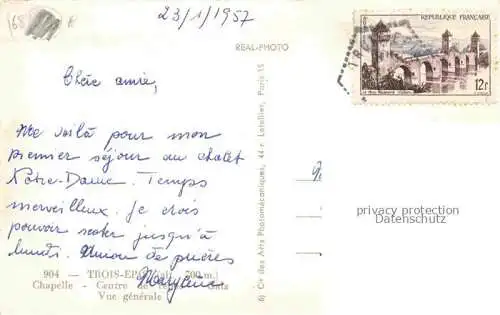 68
23/1/1957
REAL-PHOTO
RÉPUBLIQUE FRANÇAISE
12F
Chère amie,
Me voilà pour mon
premier séjour au chalet
Notre-Dame. Temps
merveilleux. Je crois
pouvoir rester jusqu'à
lundi. Union de prières
904 — TROIS-EPIS (alt. 700 m.)
Chapelle - Centre de
Vue générale
Cie des Arts Photomécaniques, 44 r. Letellier, Paris 15
privacy protection
Datenschutz